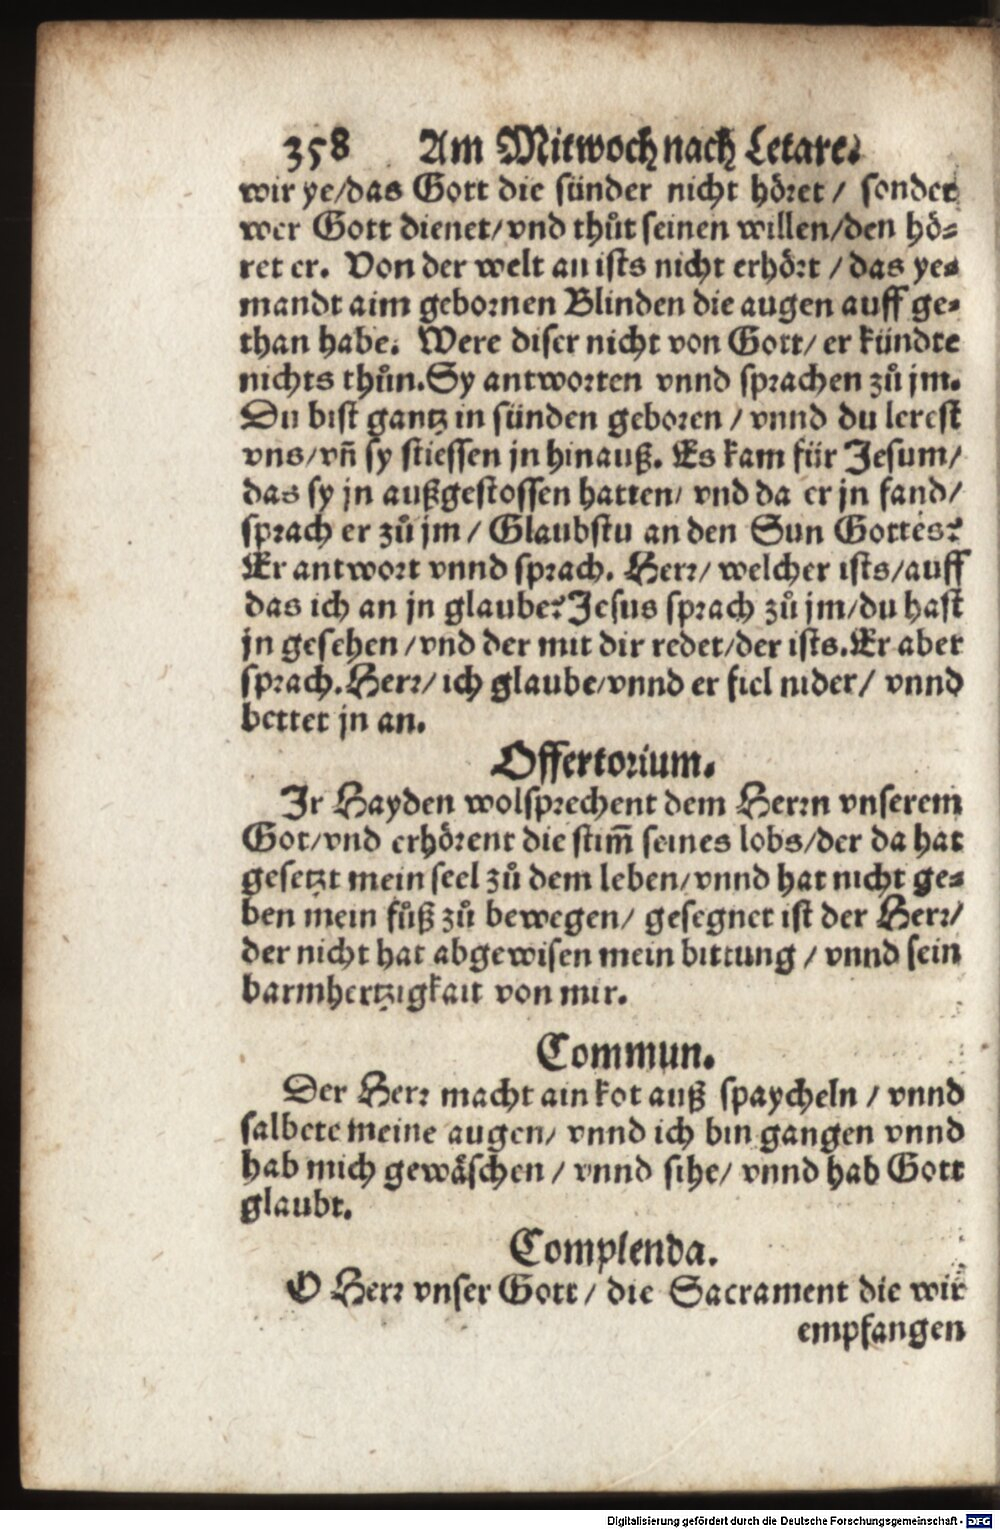 358 Am Mitwoch nach Letare.
wir ye/das Gott die sünder nicht höret / sonder
wer Gott dienet/vnd thůt seinen willen/den hö-
ret er. Von der welt an ists nicht erhört / das ye-
mandt aim gebornen Blinden die augen auff ge-
than habe. Were diser nicht von Gott/ er kündte
nichts thůn. Sy antworten vnnd sprachen zů jm.
Du bist gantz in sünden geboren / vnnd du lerest
vns/vñ sy stiessen jn hinauß. Es kam für Jesum/
das sy jn außgestossen hatten/ vnd da er jn fand/
sprach er zů jm / Glaubstu an den Sun Gottes?
Er antwort vnnd sprach. Herr/ welcher ists/auff
das ich an jn glaube? Jesus sprach zů jm/du hast
jn gesehen /vnd der mit dir redet/der ists. Er aber
sprach. Herr/ ich glaube/vnnd er fiel nider/ vnnd
bettet jn an.
Offertorium.
Ir Hayden wolsprechent dem Herrn vnserem
Got/vnd erhörent die stim̄ seines lobs/der da hat
gesetzt mein seel zů dem leben/vnnd hat nicht ge-
ben mein fůß zů bewegen/ gesegnet ist der Herr/
der nicht hat abgewisen mein bittung / vnnd sein
barmhertzigkait von mir.
Commun.
Der Herr macht ain kot auß spaycheln / vnnd
salbete meine augen/ vnnd ich bin gangen vnnd
hab mich gewäschen / vnnd sihe/ vnnd hab Gott
glaubt.
Complenda.
O Herr vnser Gott / die Sacrament die wir
empfangen
Digitalisierung gefördert durch die Deutsche Forschungsgemeinschaft - DFG